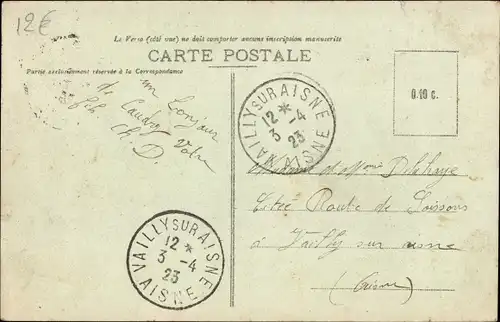 12€
Le Verso (côté vue) ne doit comporter aucune inscription manuscrite
CARTE POSTALE
Partie exclusivement réservée à la Correspondance
0.10 c.
VAILLY SUR AISNE
12 *
3 -4
23
AISNE
un bonjour
de Caudry Votre
fils Ch. D.
Delahaye
Route de Soissons
à Vailly sur aisne
(Aisne)
VAILLY SUR AISNE
12 *
3 -4
23
AISNE